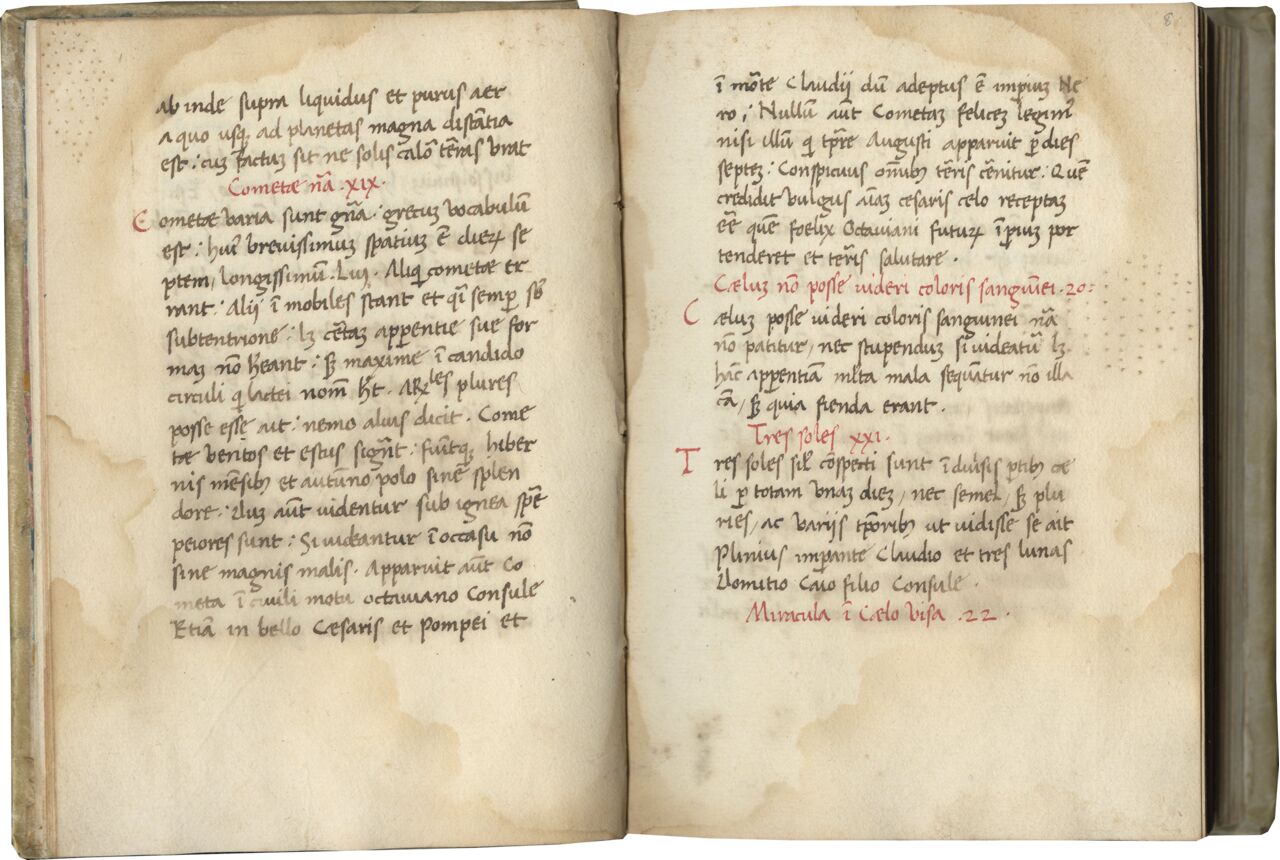 ab inde supra liquidus et purus aer
a quo usq; ad planetas magna distãtia
est : cuz factuz sit ne solis calor̃ tẽras urat
Cometæ nã .xix.
Cometæ varia sunt gñã : grecuz vocabulũ
est : huiꝰ brevissimuz spatiuz ẽ dieꝝ se
ptem, longissimũ . lxxx . Aliqi cometæ er
rant : Alii ĩ mobiles stant et qi semper sb̃
subtentrione : lz certaz apparentie sue for
maz nõ habeant : sz maxime ĩ candido
circuli qi lactei nomẽ ht̃ . ARles plures
posse esse ait : nemo alius dicit . Come
tæ ventos et estus signãt : fiuntq; hiber
nis mẽsibꝰ et autũno polo sine splen
dore : Quz aũt videntur sub ignea spẽ
peiores sunt : Si videantur ĩ occasu nõ
sine magnis malis . Apparuit aũt Co
meta ĩ civili motu octaviano Consule
Etiã in bello Cæsaris et Pompei et
8
ĩ mõte Claudii dũ adeptus ẽ impiuz Ne
ro ; Nullũ aũt Cometaz felicez legimꝰ
nisi illũ qi tp̃re Augusti apparuit p dies
septez : Conspicuus oñibꝰ tẽris cẽnitur : Quẽ
credidit vulgus aĩaz cesaris celo receptaz
eẽ quẽ foelix Octaviani futuꝝ ĩperiuz por
tenderet et tẽris salutare .
Cæluz nõ posse videri coloris sanguinei . 20 :
Cæluz posse videri coloris sanguinei nã
nõ patitur, nec stupenduz si videatur lz
hãc apparentiã ml̃ta mala sequãtur nõ illa
cã, sz quia fienda erant .
Tres soles xxi .
Tres soles sil̃ cõspecti sunt ĩ diversis ptibꝰ cæ
li p totam unaz diez, nec semel, sz plu
ries, ac variis tp̃oribꝰ ut vidisse se ait
Plinius imperante Claudio et tres lunas
Domitio Caio filio Consule .
Miracula ĩ Cælo visa . 22 .